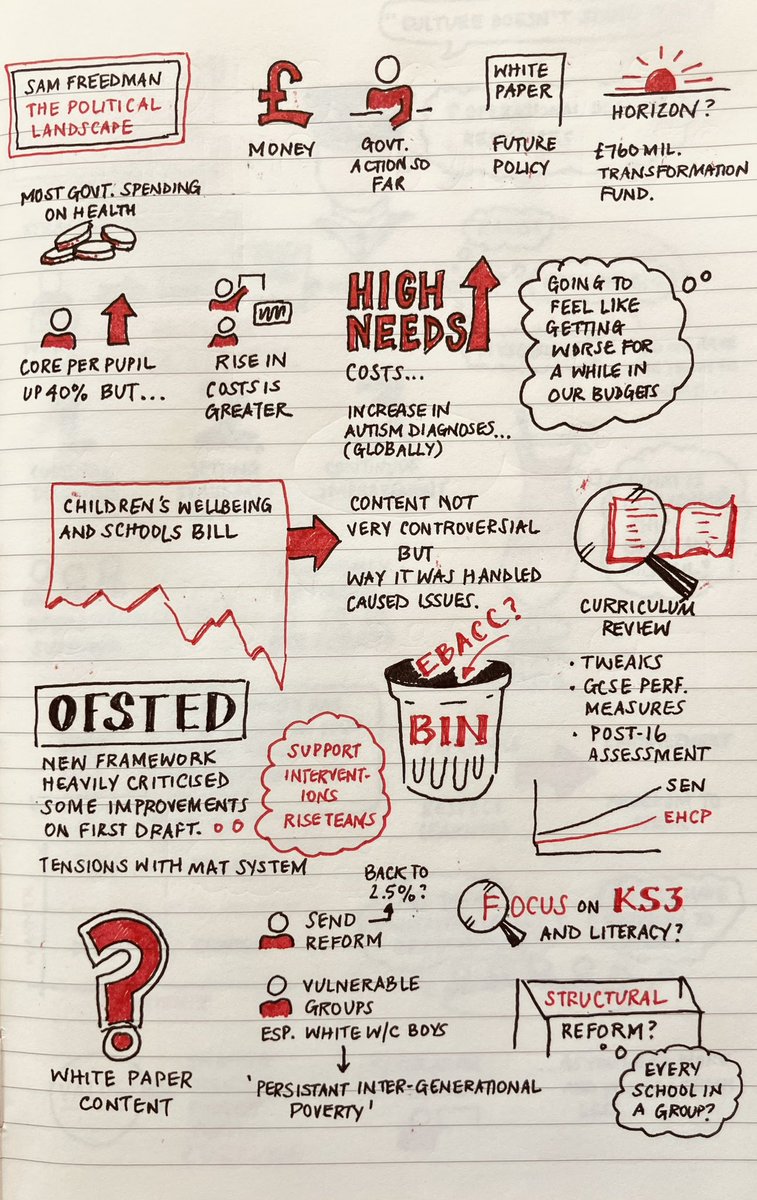 SAM FREEDMAN
THE POLITICAL
LANDSCAPE
£
MONEY
GOVT.
ACTION SO
FAR
WHITE
PAPER
FUTURE
POLICY
HORIZON?
£760 MIL.
TRANSFORMATION
FUND.
MOST GOVT. SPENDING
ON HEALTH
CORE PER PUPIL
UP 40% BUT...
RISE IN
COSTS IS
GREATER
HIGH
NEEDS
COSTS...
INCREASE IN
AUTISM DIAGNOSES...
(GLOBALLY)
GOING TO
FEEL LIKE
GETTING
WORSE FOR
A WHILE IN
OUR BUDGETS
CHILDREN'S WELLBEING
AND SCHOOLS BILL
CONTENT NOT
VERY CONTROVERSIAL
BUT
WAY IT WAS HANDLED
CAUSED ISSUES.
CURRICULUM
REVIEW
• TWEAKS
• GCSE PERF.
MEASURES
• POST-16
ASSESSMENT
EBACC?
BIN
OFSTED
NEW FRAMEWORK
HEAVILY CRITICISED
SOME IMPROVEMENTS
ON FIRST DRAFT.
SUPPORT
INTERVENT-
IONS
RISE TEAMS
TENSIONS WITH MAT SYSTEM
SEN
EHCP
?
WHITE PAPER
CONTENT
BACK TO
2.5%?
SEND
REFORM
VULNERABLE
GROUPS
ESP. WHITE W/C BOYS
'PERSISTANT INTER-GENERATIONAL
POVERTY'
FOCUS ON KS3
AND LITERACY?
STRUCTURAL
REFORM?
EVERY
SCHOOL IN
A GROUP?